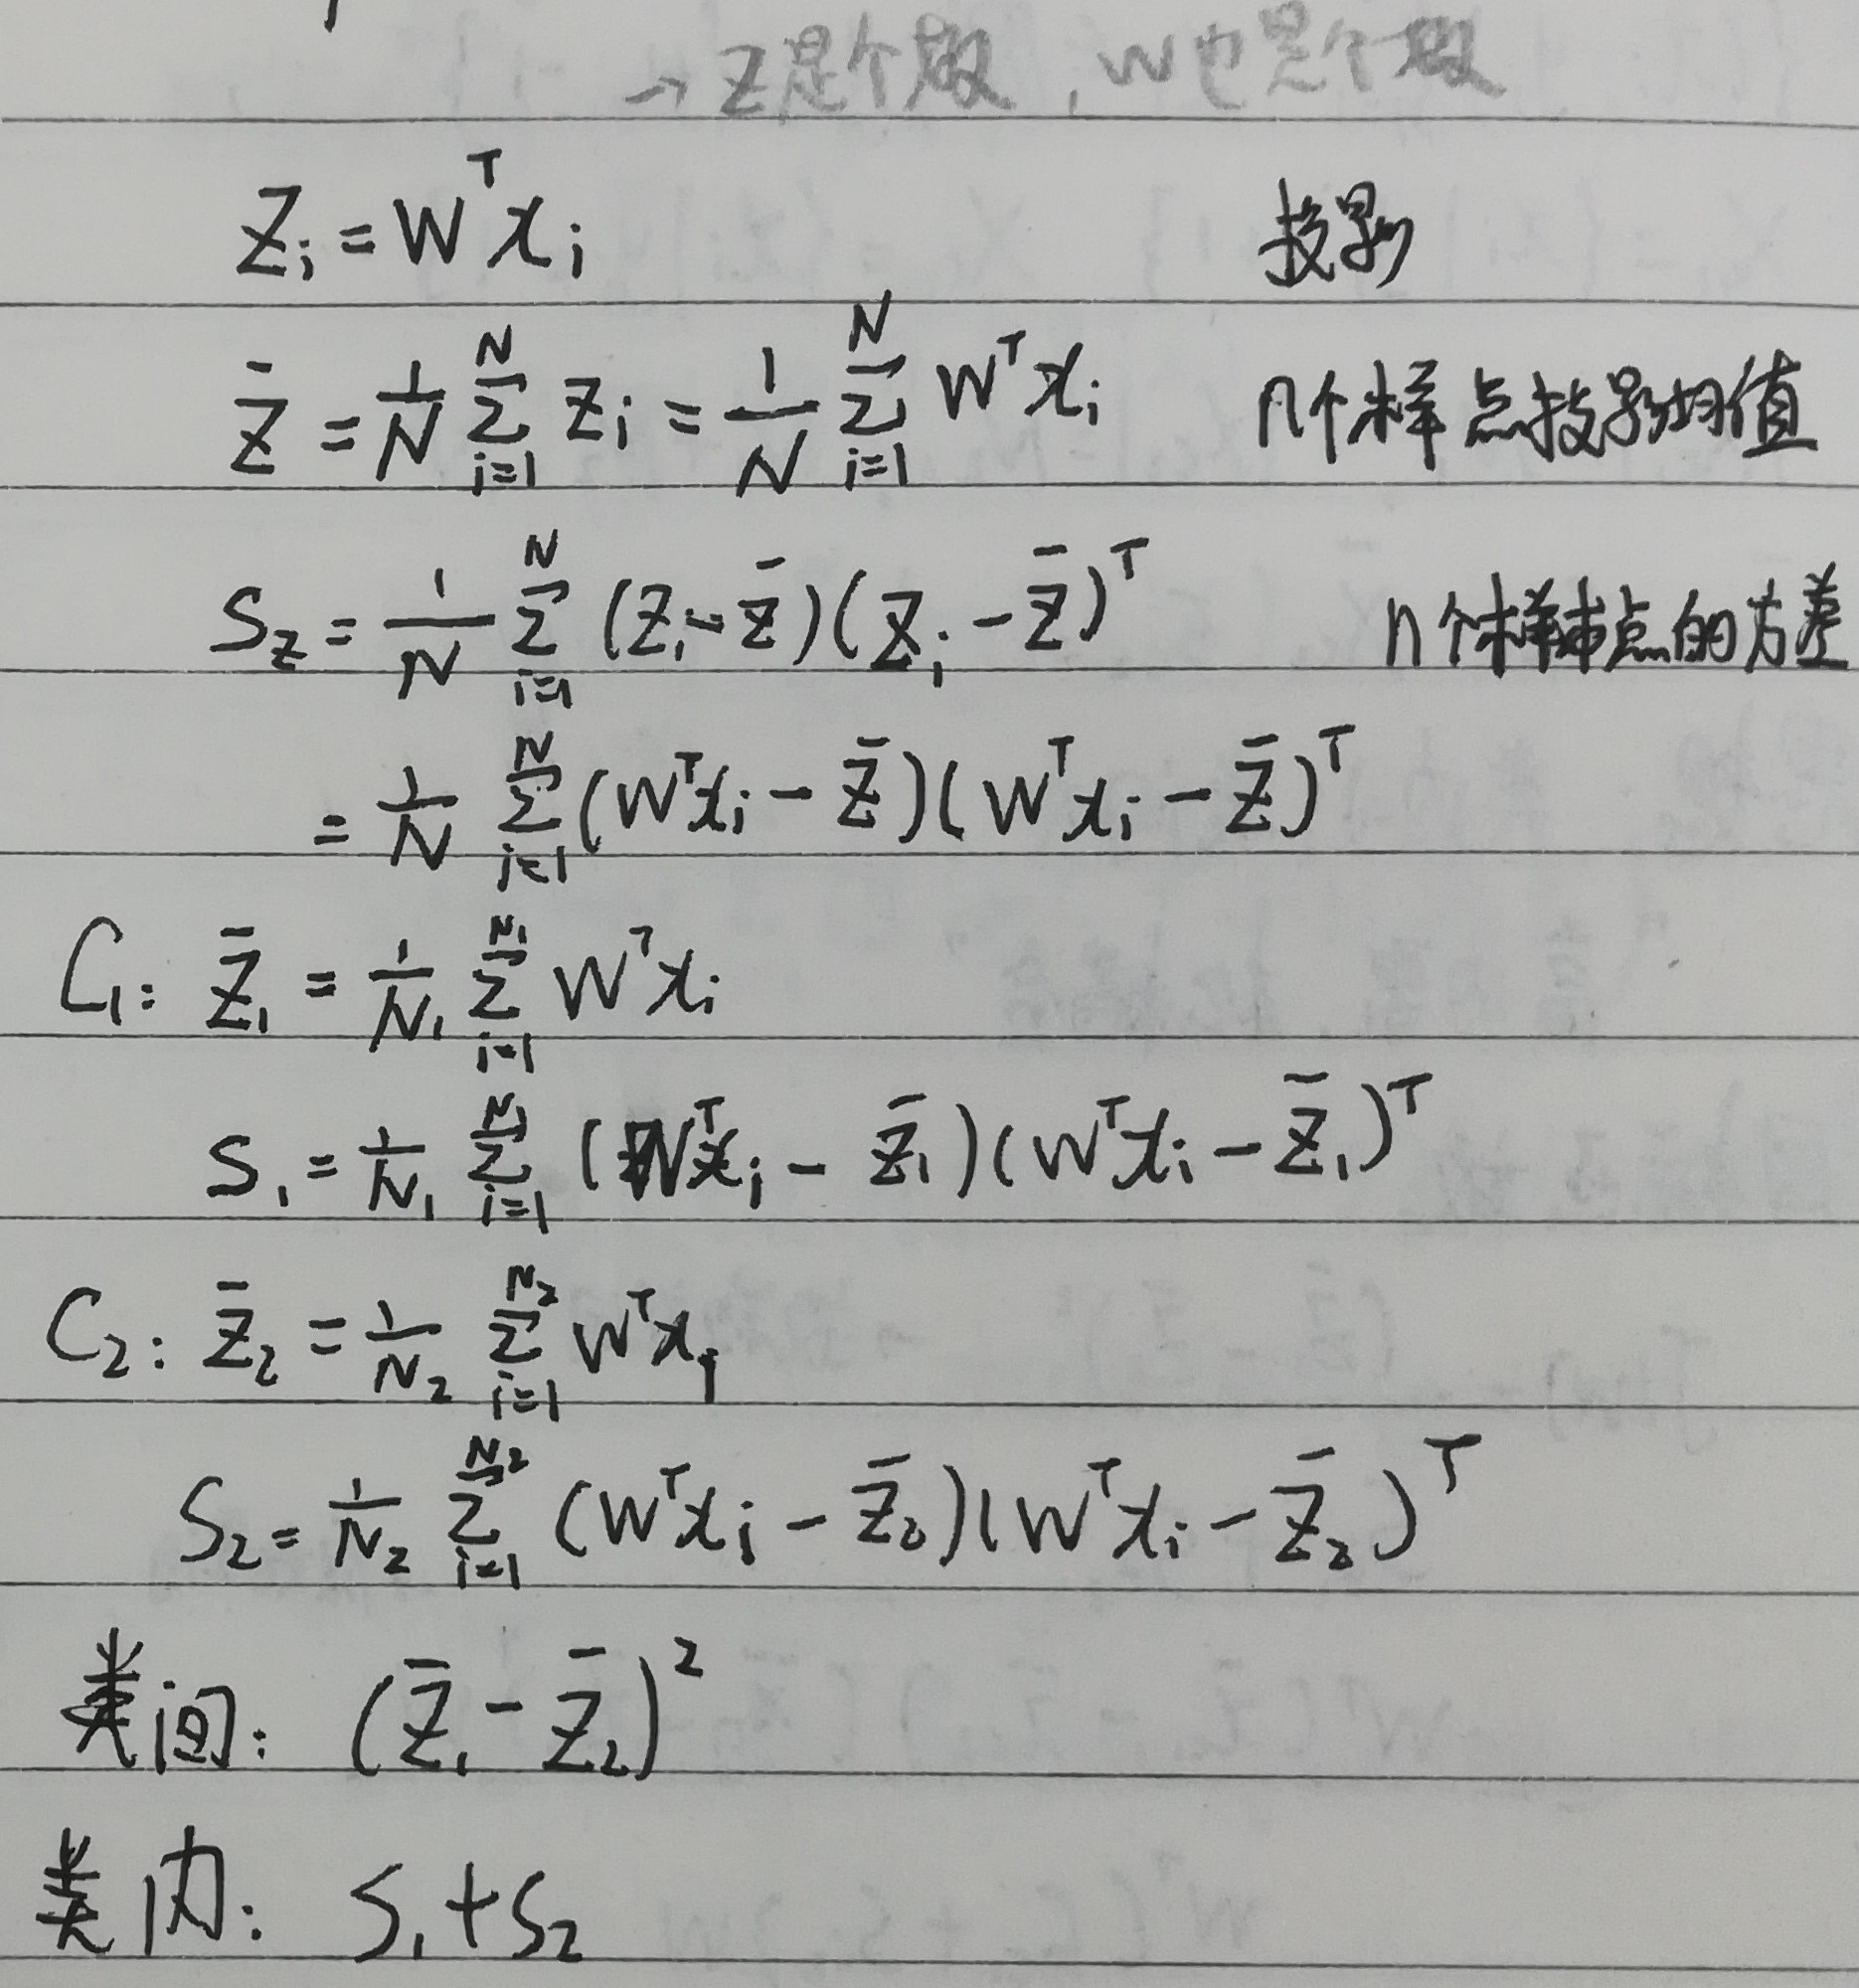 → Z是个数, W也是个数
Zᵢ = Wᵀxᵢ 投影
Z̄ = 1/N ∑ᵢ₌₁ᴺ Zᵢ = 1/N ∑ᵢ₌₁ᴺ Wᵀxᵢ n个样点投影均值
S_Z = 1/N ∑ᵢ₌₁ᴺ (Zᵢ - Z̄)(Zᵢ - Z̄)ᵀ n个样本点的方差
= 1/N ∑ᵢ₌₁ᴺ (Wᵀxᵢ - Z̄)(Wᵀxᵢ - Z̄)ᵀ
C₁: Z̄₁ = 1/N₁ ∑ᵢ₌₁^N₁ Wᵀxᵢ
S₁ = 1/N₁ ∑ᵢ₌₁^N₁ (Wᵀxᵢ - Z̄₁)(Wᵀxᵢ - Z̄₁)ᵀ
C₂: Z̄₂ = 1/N₂ ∑ᵢ₌₁^N₂ Wᵀxᵢ
S₂ = 1/N₂ ∑ᵢ₌₁^N₂ (Wᵀxᵢ - Z̄₂)(Wᵀxᵢ - Z̄₂)ᵀ
类间: (Z̄₁ - Z̄₂)²
类内: S₁ + S₂